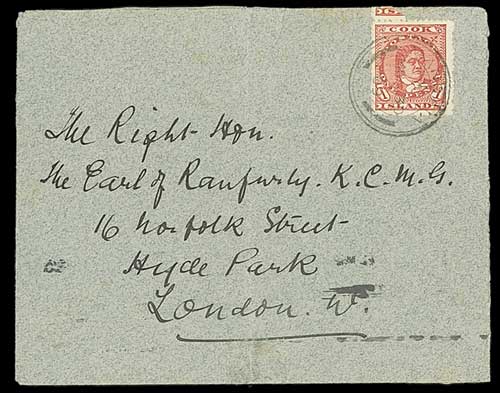 COOK
1 1
ISLANDS
The Right Hon.
The Earl of Ranfurly. K.C.M.G.
16 Norfolk Street
Hyde Park
London. W.